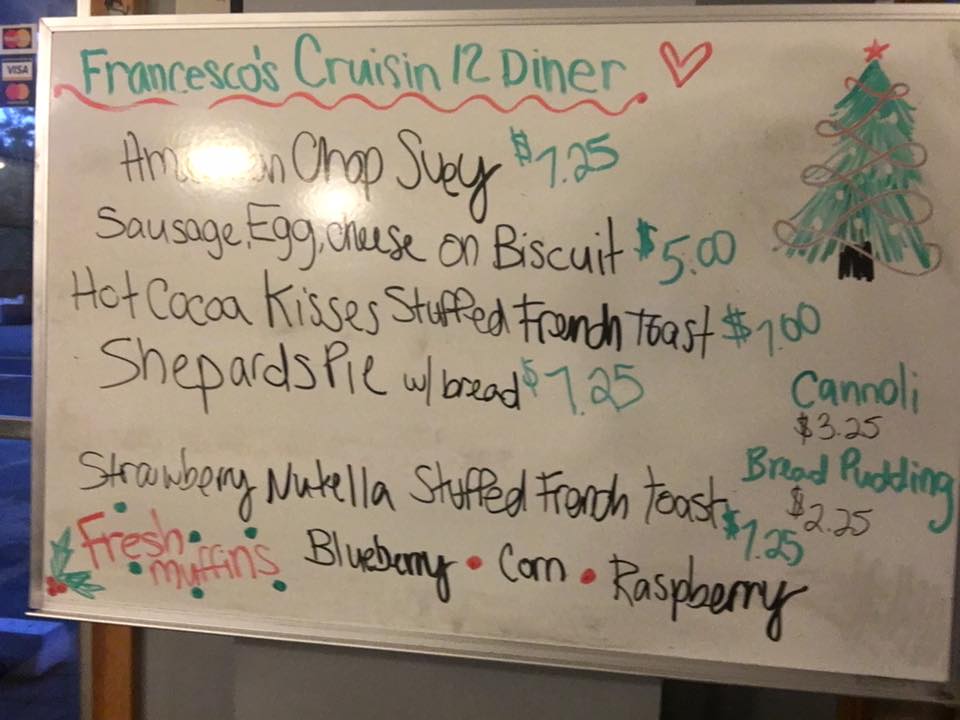 VISA
Francesco's Cruisin 12 Diner
American Chop Suey $7.25
Sausage, Egg, cheese on Biscuit $5.00
Hot Cocoa Kisses Stuffed French Toast $7.00
Shepards Pie w/ bread $7.25
Cannoli
$3.25
Bread Pudding
$2.25
Strawberry Nutella Stuffed French Toast $7.25
Fresh muffins
Blueberry • Corn • Raspberry